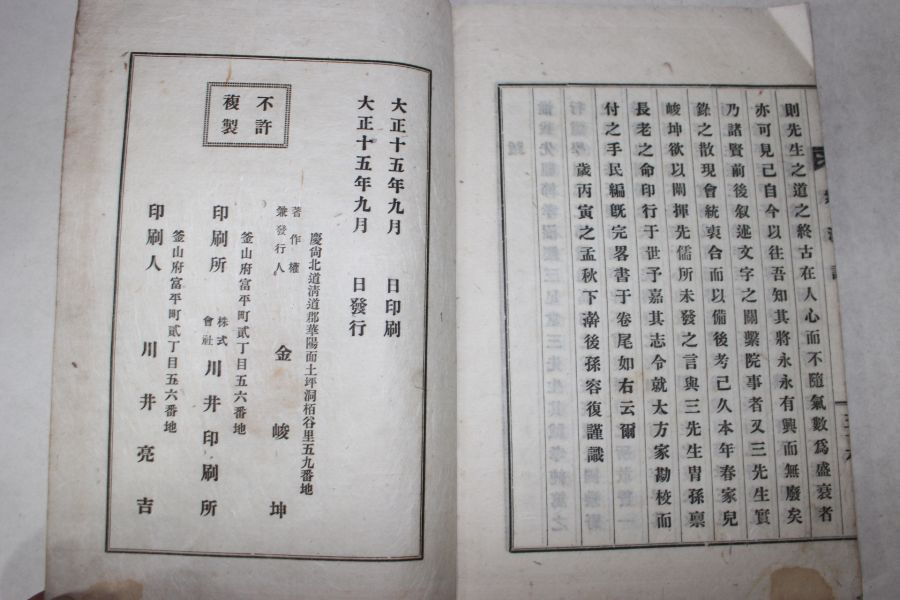 則先生之道之終古在人心而不隨氣數爲盛衰者
亦可見已自今以往吾知其將永永有興而無廢矣
乃諸賢前後叙述文字之關繫院事者又三先生實
錄之散現會統裒合而以備後考已久本年春家兒
峻坤欲以闡揮先儒所未發之言與三先生胄孫禀
長老之命印行于世予嘉其志令就大方家勘校而
付之手民編旣完畧書于卷尾如右云爾
歲丙寅之孟秋下澣後孫容復謹識
大正十五年九月 日印刷
大正十五年九月 日發行
慶尙北道淸道郡華陽面土坪洞栢谷里五九番地
著作權
兼發行人 金峻坤
釜山府富平町貳丁目五六番地
印刷所 株式會社 川井印刷所
釜山府富平町貳丁目五六番地
印刷人 川井亮吉
不許
複製